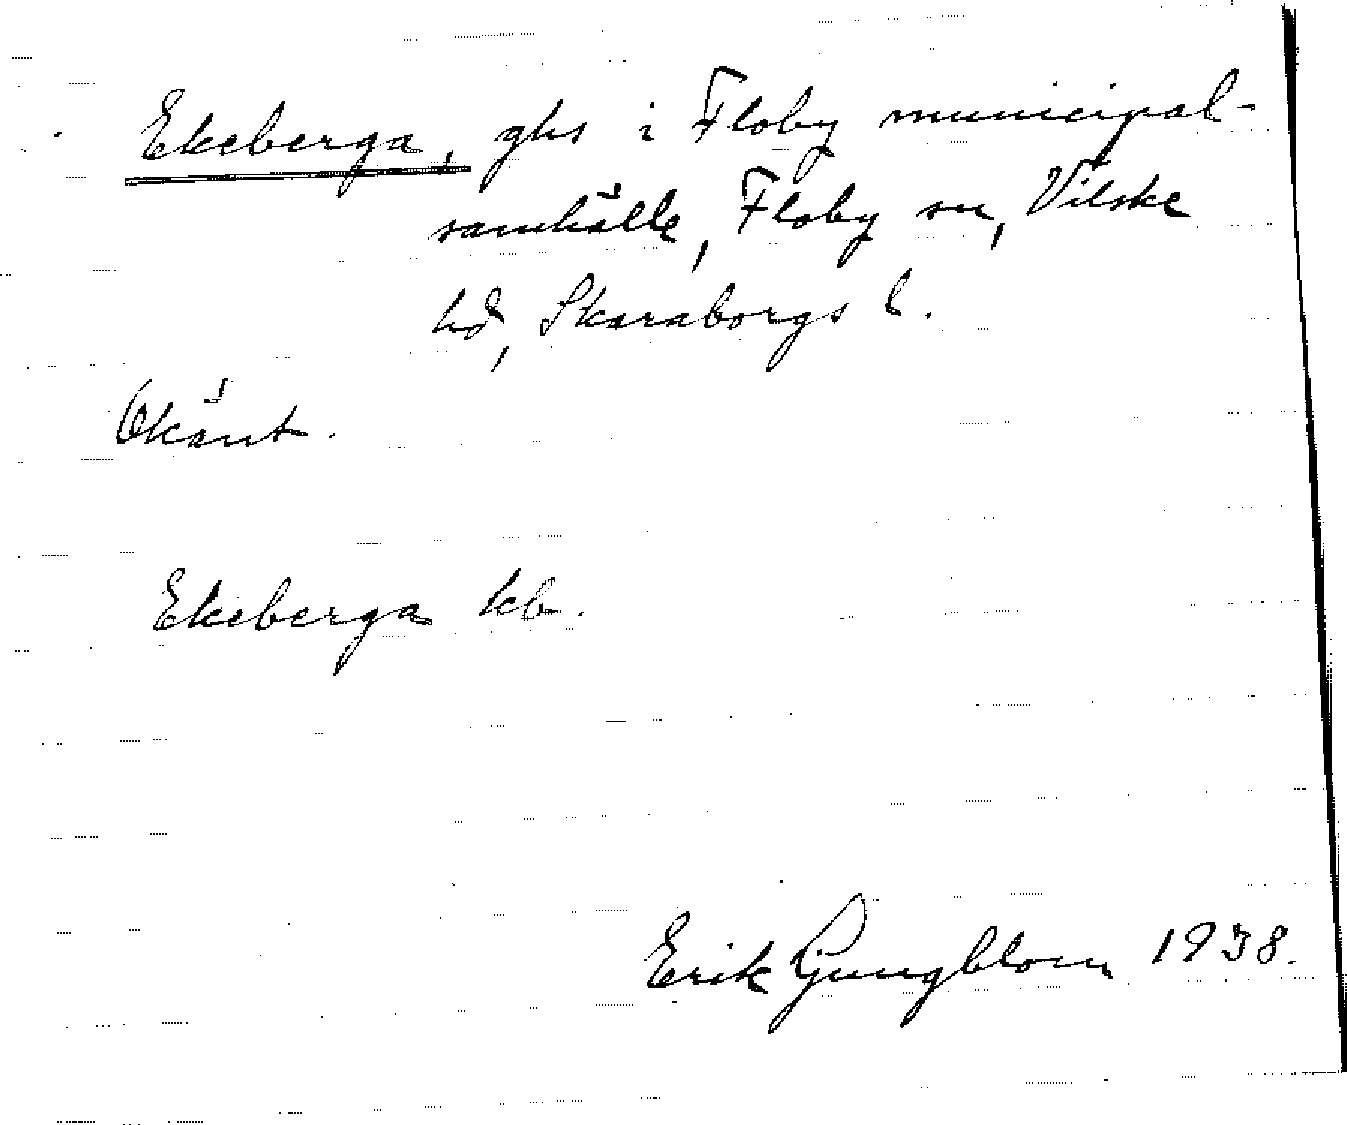 Ekeberga, ghs i Floby municipal-
samhälle, Floby sn, Vilske
hd, Skaraborgs l.
Okänt.
Ekeberga kb.
Erik Ljungblom 1938.